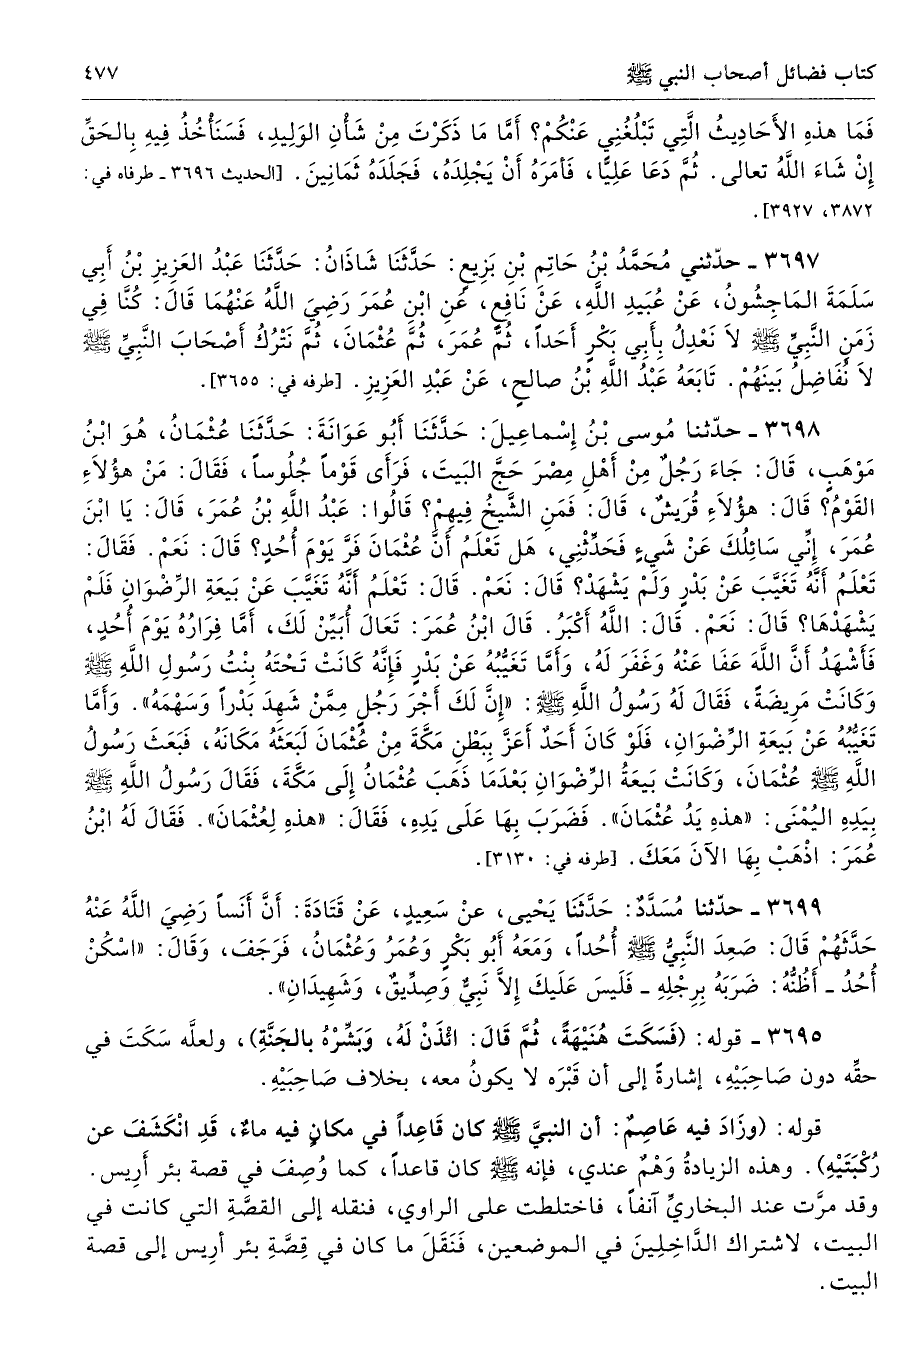 كتاب فضائل أصحاب النبي ﷺ ٤٧٧
فَمَا هذهِ الأَحَادِيثُ الَّتِي تَبْلُغُنِي عَنْكُمْ؟ أَمَّا مَا ذَكَرْتَ مِنْ شَأْنِ الوَلِيدِ، فَسَنَأْخُذُ فِيهِ بِالحَقِّ
إِنْ شَاءَ اللَّهُ تعالى. ثُمَّ دَعَا عَلِيًّا، فَأَمَرَهُ أَنْ يَجْلِدَهُ، فَجَلَدَهُ ثَمَانِينَ. [الحديث ٣٦٩٦ ـ طرفاه في:
٣٨٧٢، ٣٩٢٧].
٣٦٩٧ ـ حدّثني مُحَمَّدُ بْنُ حَاتِمِ بْنِ بَزِيعٍ: حَدَّثَنَا شَاذَانُ: حَدَّثَنَا عَبْدُ العَزِيزِ بْنُ أَبِي
سَلَمَةَ المَاجِشُونُ، عَنْ عُبَيدِ اللَّهِ، عَنْ نَافِعٍ، عَنِ ابْنِ عُمَرَ رَضِيَ اللَّهُ عَنْهُمَا قَالَ: كُنَّا فِي
زَمَنِ النَّبِيِّ ﷺ لاَ نَعْدِلُ بِأَبِي بَكْرٍ أَحَداً، ثُمَّ عُمَرَ، ثُمَّ عُثْمَانَ، ثُمَّ نَتْرُكُ أَصْحَابَ النَّبِيِّ ﷺ
لاَ نُفَاضِلُ بَينَهُمْ. تَابَعَهُ عَبْدُ اللَّهِ بْنُ صالحٍ، عَنْ عَبْدِ العَزِيزِ. [طرفه في: ٣٦٥٥].
٣٦٩٨ ـ حدّثنا مُوسى بْنُ إِسْماعِيلَ: حَدَّثَنَا أَبُو عَوَانَةَ: حَدَّثَنَا عُثْمَانُ، هُوَ ابْنُ
مَوْهَبٍ، قَالَ: جَاءَ رَجُلٌ مِنْ أَهْلِ مِصْرَ حَجَّ البَيتَ، فَرَأَى قَوْماً جُلُوساً، فَقَالَ: مَنْ هؤُلاَءِ
القَوْمُ؟ قَالَ: هؤُلاَءِ قُرَيشٌ، قَالَ: فَمَنِ الشَّيخُ فِيهِمْ؟ قَالُوا: عَبْدُ اللَّهِ بْنُ عُمَرَ، قَالَ: يَا ابْنَ
عُمَرَ، إِنِّي سَائِلُكَ عَنْ شَيءٍ فَحَدِّثْنِي، هَل تَعْلَمُ أَنَّ عُثْمَانَ فَرَّ يَوْمَ أُحُدٍ؟ قَالَ: نَعَمْ. فَقَالَ:
تَعْلَمُ أَنَّهُ تَغَيَّبَ عَنْ بَدْرٍ وَلَمْ يَشْهَدْ؟ قَالَ: نَعَمْ. قَالَ: تَعْلَمُ أَنَّهُ تَغَيَّبَ عَنْ بَيعَةِ الرِّضْوَانِ فَلَمْ
يَشْهَدْهَا؟ قَالَ: نَعَمْ. قَالَ: اللَّهُ أَكْبَرُ. قَالَ ابْنُ عُمَرَ: تَعَالَ أُبَيِّنْ لَكَ، أَمَّا فِرَارُهُ يَوْمَ أُحُدٍ،
فَأَشْهَدُ أَنَّ اللَّهَ عَفَا عَنْهُ وَغَفَرَ لَهُ، وَأَمَّا تَغَيُّبُهُ عَنْ بَدْرٍ فَإِنَّهُ كَانَتْ تَحْتَهُ بِنْتُ رَسُولِ اللَّهِ ﷺ
وَكَانَتْ مَرِيضَةً، فَقَالَ لَهُ رَسُولُ اللَّهِ ﷺ: «إِنَّ لَكَ أَجْرَ رَجُلٍ مِمَّنْ شَهِدَ بَدْراً وَسَهْمَهُ». وَأَمَّا
تَغَيُّبُهُ عَنْ بَيعَةِ الرِّضْوَانِ، فَلَوْ كَانَ أَحَدٌ أَعَزَّ بِبَطْنِ مَكَّةَ مِنْ عُثْمَانَ لَبَعَثَهُ مَكَانَهُ، فَبَعَثَ رَسُولُ
اللَّهِ ﷺ عُثْمَانَ، وَكَانَتْ بَيعَةُ الرِّضْوَانِ بَعْدَمَا ذَهَبَ عُثْمَانُ إِلَى مَكَّةَ، فَقَالَ رَسُولُ اللَّهِ ﷺ
بِيَدِهِ اليُمْنَى: «هذهِ يَدُ عُثْمَانَ». فَضَرَبَ بِهَا عَلَى يَدِهِ، فَقَالَ: «هذهِ لِعُثْمَانَ». فَقَالَ لَهُ ابْنُ
عُمَرَ: اذْهَبْ بِهَا الآنَ مَعَكَ. [طرفه في: ٣١٣٠].
٣٦٩٩ ـ حدّثنا مُسَدَّدٌ: حَدَّثَنَا يَحْيى، عنْ سَعِيدٍ، عَنْ قَتَادَةَ: أَنَّ أَنَساً رَضِيَ اللَّهُ عَنْهُ
حَدَّثَهُمْ قَالَ: صَعِدَ النَّبِيُّ ﷺ أُحُداً، وَمَعَهُ أَبُو بَكْرٍ وَعُمَرُ وَعُثْمَانُ، فَرَجَفَ، وَقَالَ: «اسْكُنْ
أُحُدُ ـ أَظُنُّهُ: ضَرَبَهُ بِرِجْلِهِ ـ فَلَيسَ عَلَيكَ إِلاَّ نَبِيٌّ وَصِدِّيقٌ، وَشَهِيدَانِ».
٣٦٩٥ ـ قوله: (فَسَكَتَ هُنَيْهَةً، ثُمَّ قَالَ: ائْذَنْ لَهُ، وَبَشِّرْهُ بالجَنَّةِ)، ولعلَّه سَكَتَ في
حقِّه دون صَاحِبَيْهِ، إشارةً إلى أن قَبْرَه لا يكونُ معه، بخلاف صَاحِبَيْهِ.
قوله: (وزَادَ فيه عَاصِمٌ: أن النبيَّ ﷺ كان قَاعِداً في مكانٍ فيه ماءٌ، قَدِ انْكَشَفَ عن
رُكْبَتَيْهِ). وهذه الزيادةُ وَهْمٌ عندي، فإنه ﷺ كان قاعداً، كما وُصِفَ في قصة بئر أَرِيس.
وقد مرَّت عند البخاريِّ آنفاً، فاختلطت على الراوي، فنقله إلى القصَّةِ التي كانت في
البيت، لاشتراك الدَّاخِلِينَ في الموضعين، فَنَقَلَ ما كان في قِصَّةِ بئر أرِيس إلى قصة
البيت.